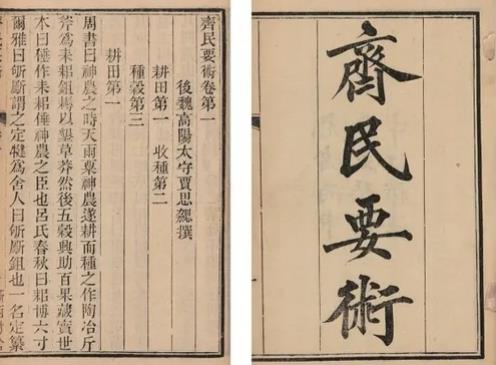 齊民要術
齊民要術卷第一
後魏高陽太守賈思勰撰
耕田第一 收種第二
種穀第三
耕田第一
周書曰神農之時天雨粟神農遂耕而種之作陶冶斤
斧爲耒耜鉏耨以墾草莽然後五穀興助百果藏實世
本曰倕作耒耜倕神農之臣也呂氏春秋曰耜博六寸
爾雅曰斪斸謂之定犍爲舍人曰斪斸鉏也一名定纂